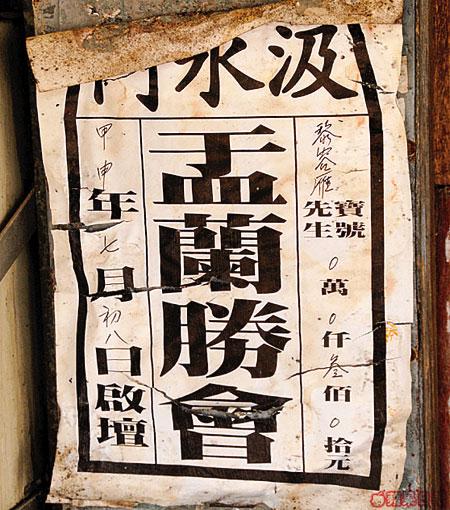 汲水門
黎容雁
寶號
先生
0萬0仟叁佰0拾元
盂蘭勝會
甲申年七月初八日啟壇